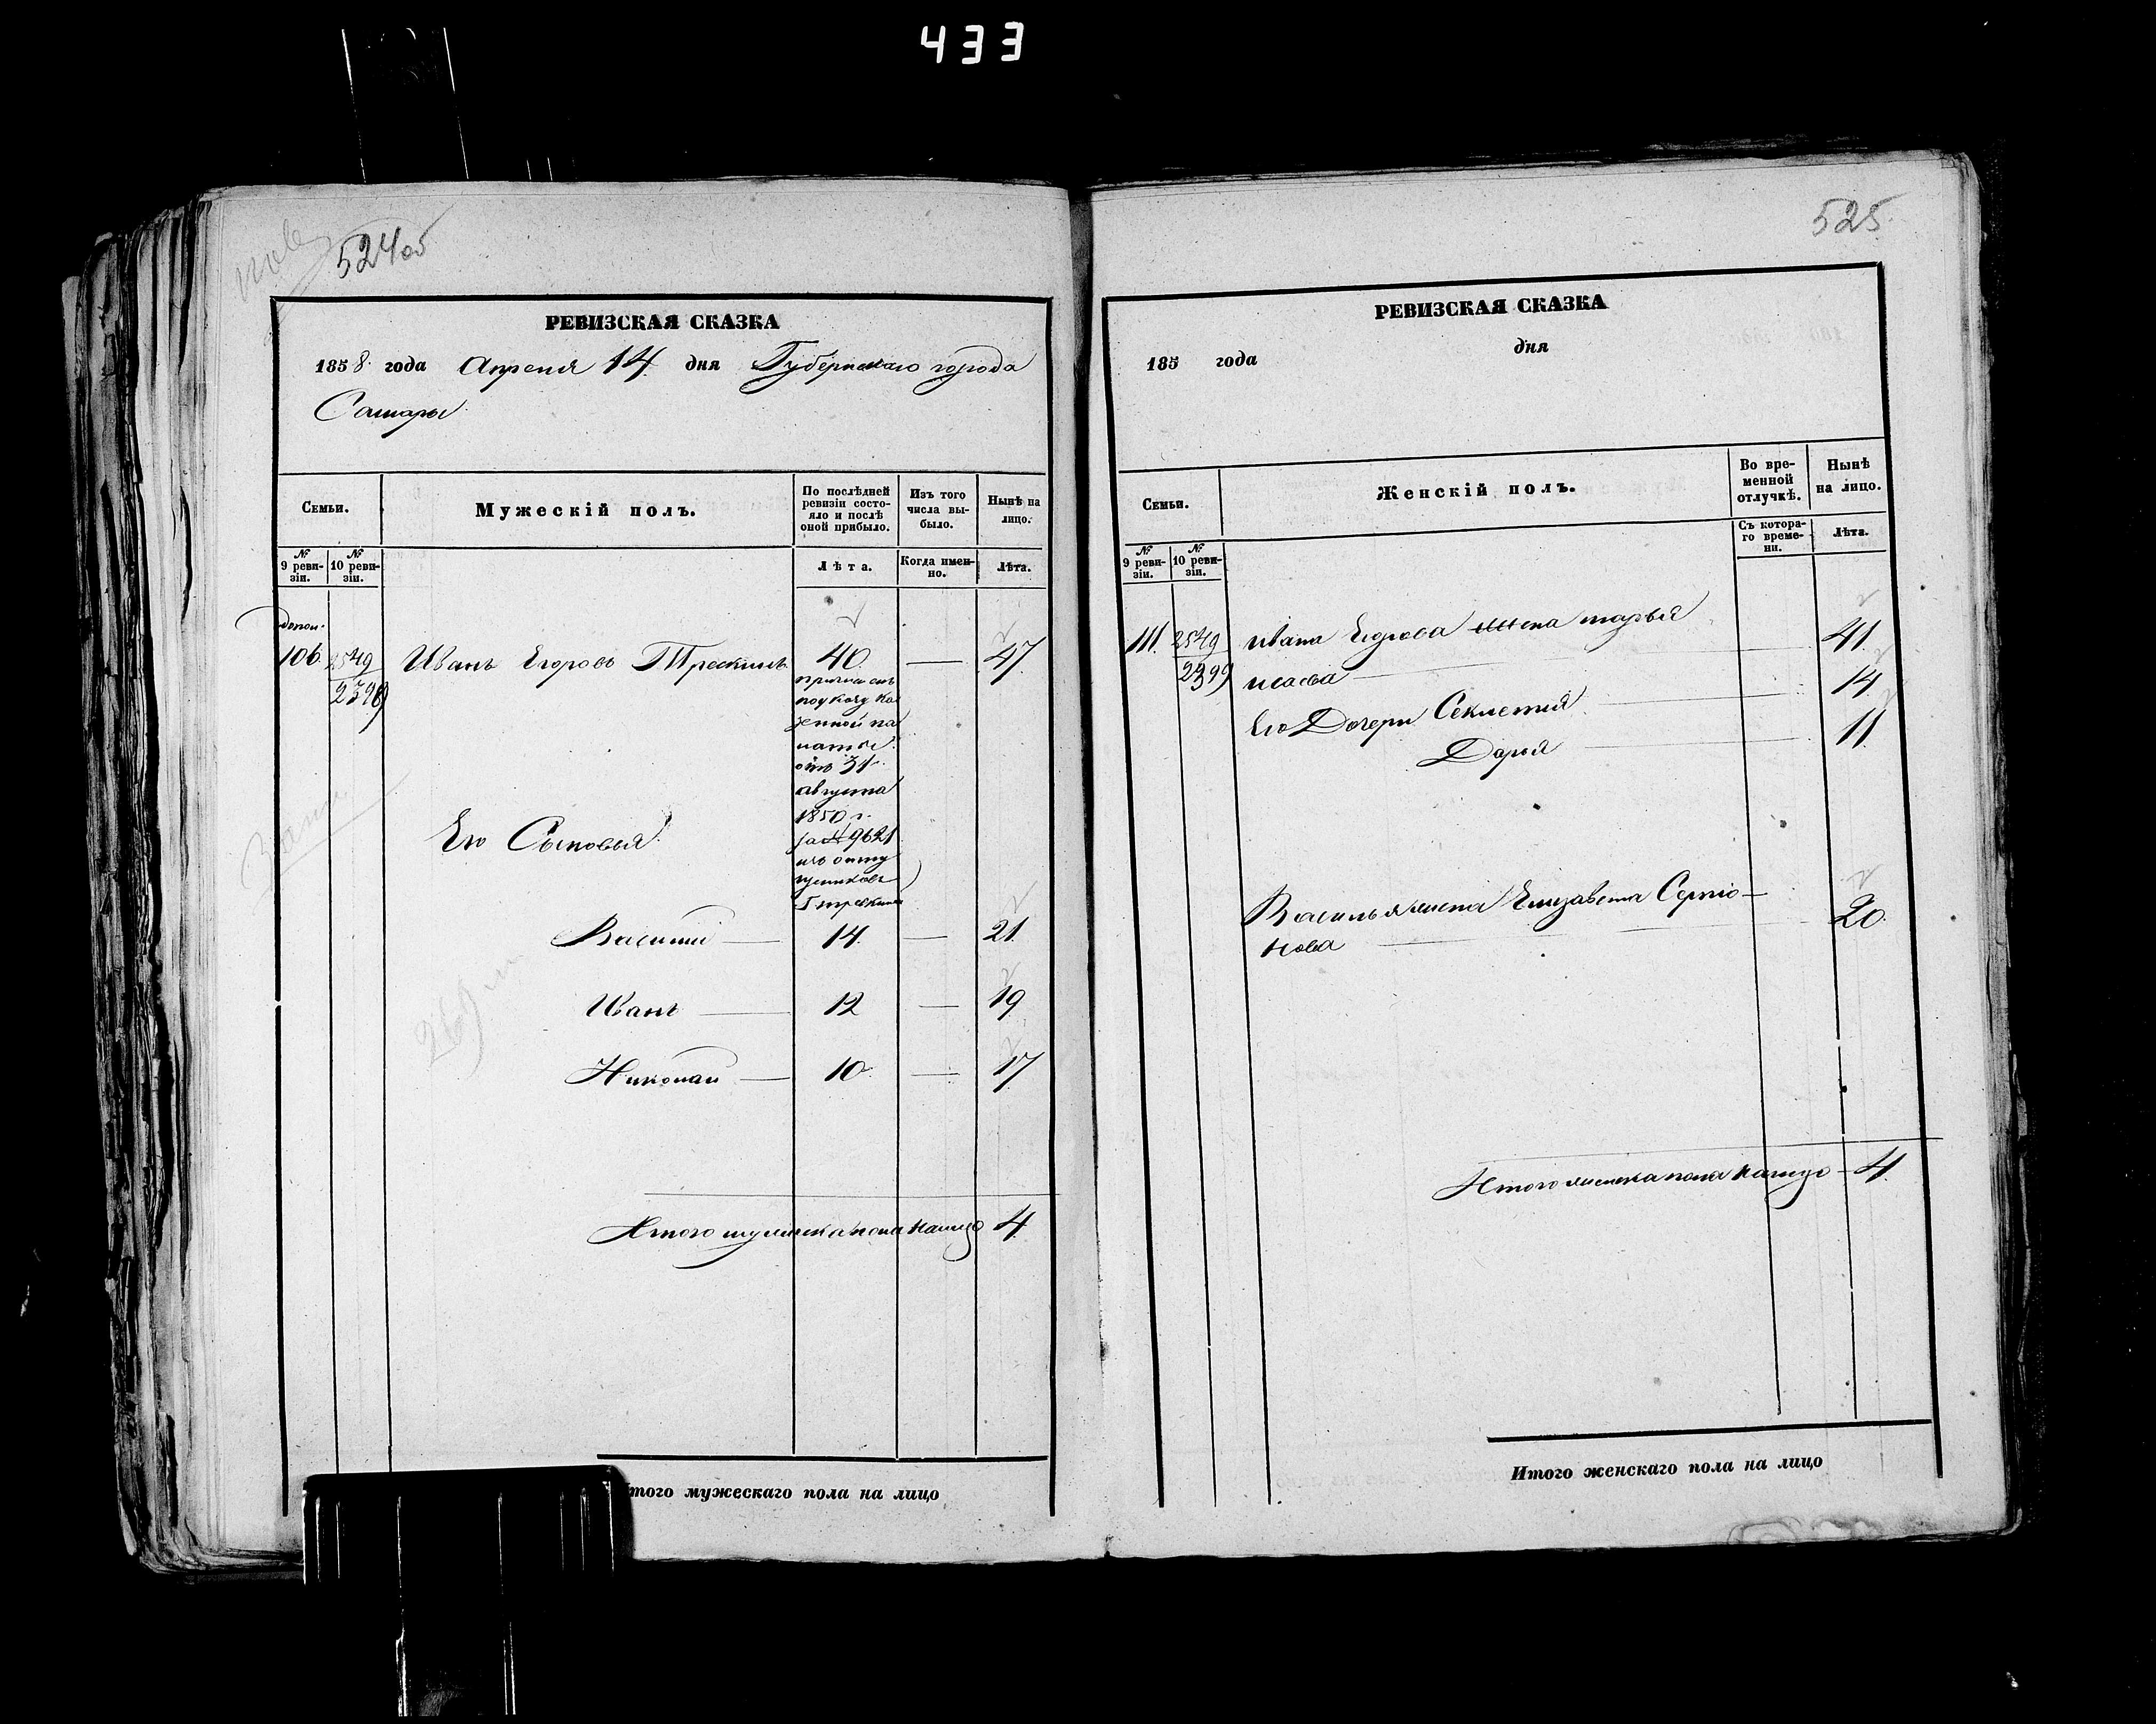 433
524об
РЕВИЗСКАЯ СКАЗКА
1858 года Апреля 14 дня Губернскаго города
Самары
Семьи.
Мужескій полъ.
По послѣдней ревизіи состояло и послѣ оной прибыло.
Изъ того числа выбыло.
Нынѣ на лицо.
№ 9 ревизіи.
№ 10 ревизіи.
Лѣта.
Когда именно.
Лѣта.
допол.
106 2549 Иванъ Егоровъ Трескинъ 40 — 47
2398
причислен
по указу Ка
зенной па
латы
отъ 31
августа
1850 г.
за № 9621
изъ отпу
щениковъ
Его Сыновья
Василій — 14 — 21
Иванъ — 12 — 19
Николай — 10 — 17
Итого мужеска пола налицо 4
Итого мужескаго пола на лицо
525
РЕВИЗСКАЯ СКАЗКА
185 года дня
Семьи.
Женскій полъ.
Во временной отлучкѣ.
Нынѣ на лицо.
№ 9 ревизіи.
№ 10 ревизіи.
Съ котораго времени.
Лѣта.
111 2549 Ивана Егорова жена Марья
2399 Исаева — 41
Его Дочери Секлетия — 14
Дарья — 11
Василья жена Елизавета Сергіо-
нова — 20
Итого женска пола налицо — 4
Итого женскаго пола на лицо